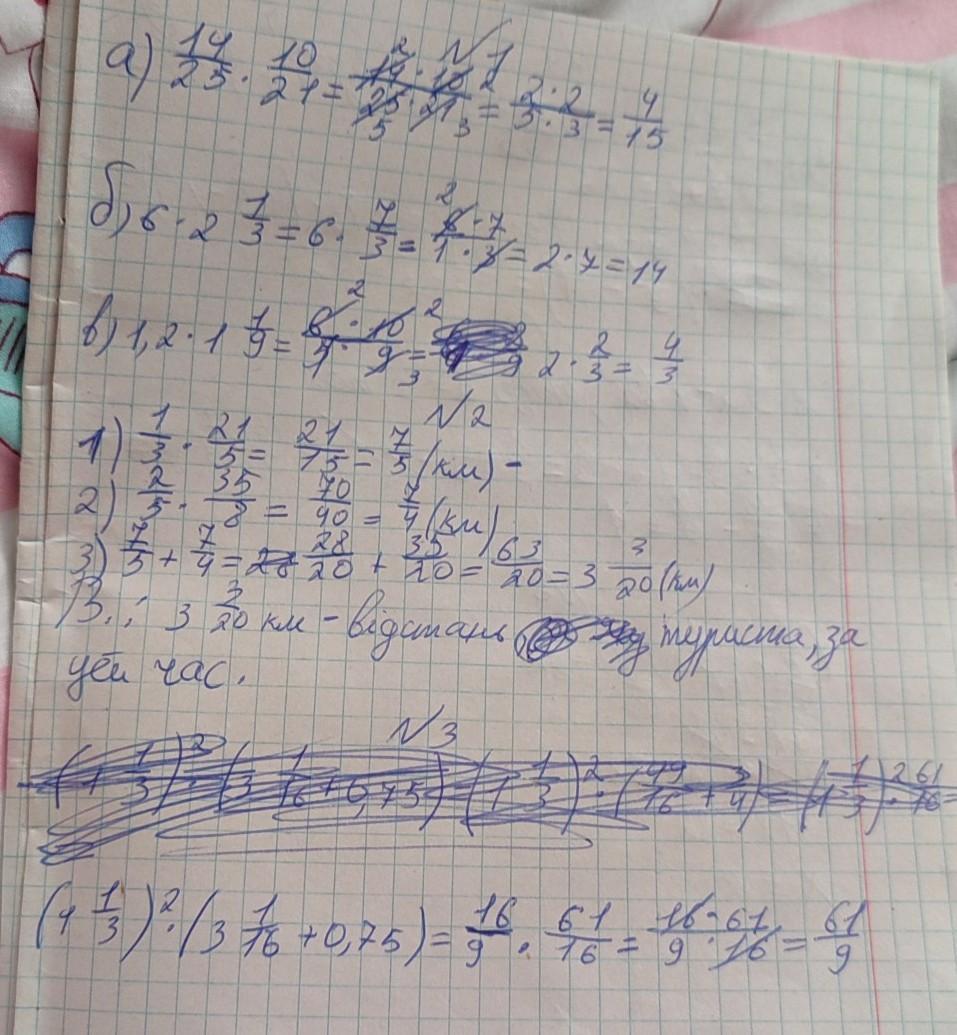 №1
а) 14/25 · 10/21 = 14·10/25·21 = 2·2/5·3 = 4/15
б) 6 · 2 1/3 = 6 · 7/3 = 6·7/1·3 = 2·7 = 14
в) 1,2 · 1 1/9 = 6·10/5·9 = 2 · 2/3 = 4/3
№2
1) 1/3 · 21/5 = 21/15 = 7/5 (км) -
2) 2/5 · 35/8 = 70/40 = 7/4 (км)
3) 7/5 + 7/4 = 28/20 + 35/20 = 63/20 = 3 3/20 (км)
В.: 3 3/20 км - відстань туриста, за
цей час.
№3
(1 1/3)² · (3 1/16 + 0,75) = 16/9 · 61/16 = 16·61/9·16 = 61/9